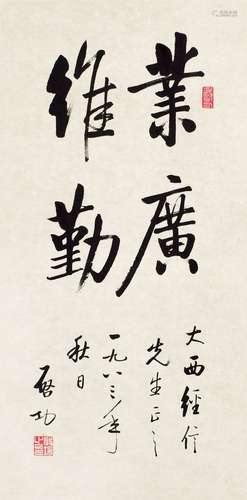 業廣
維勤
大西經行
先生正之
一九八三年
秋日
啓功